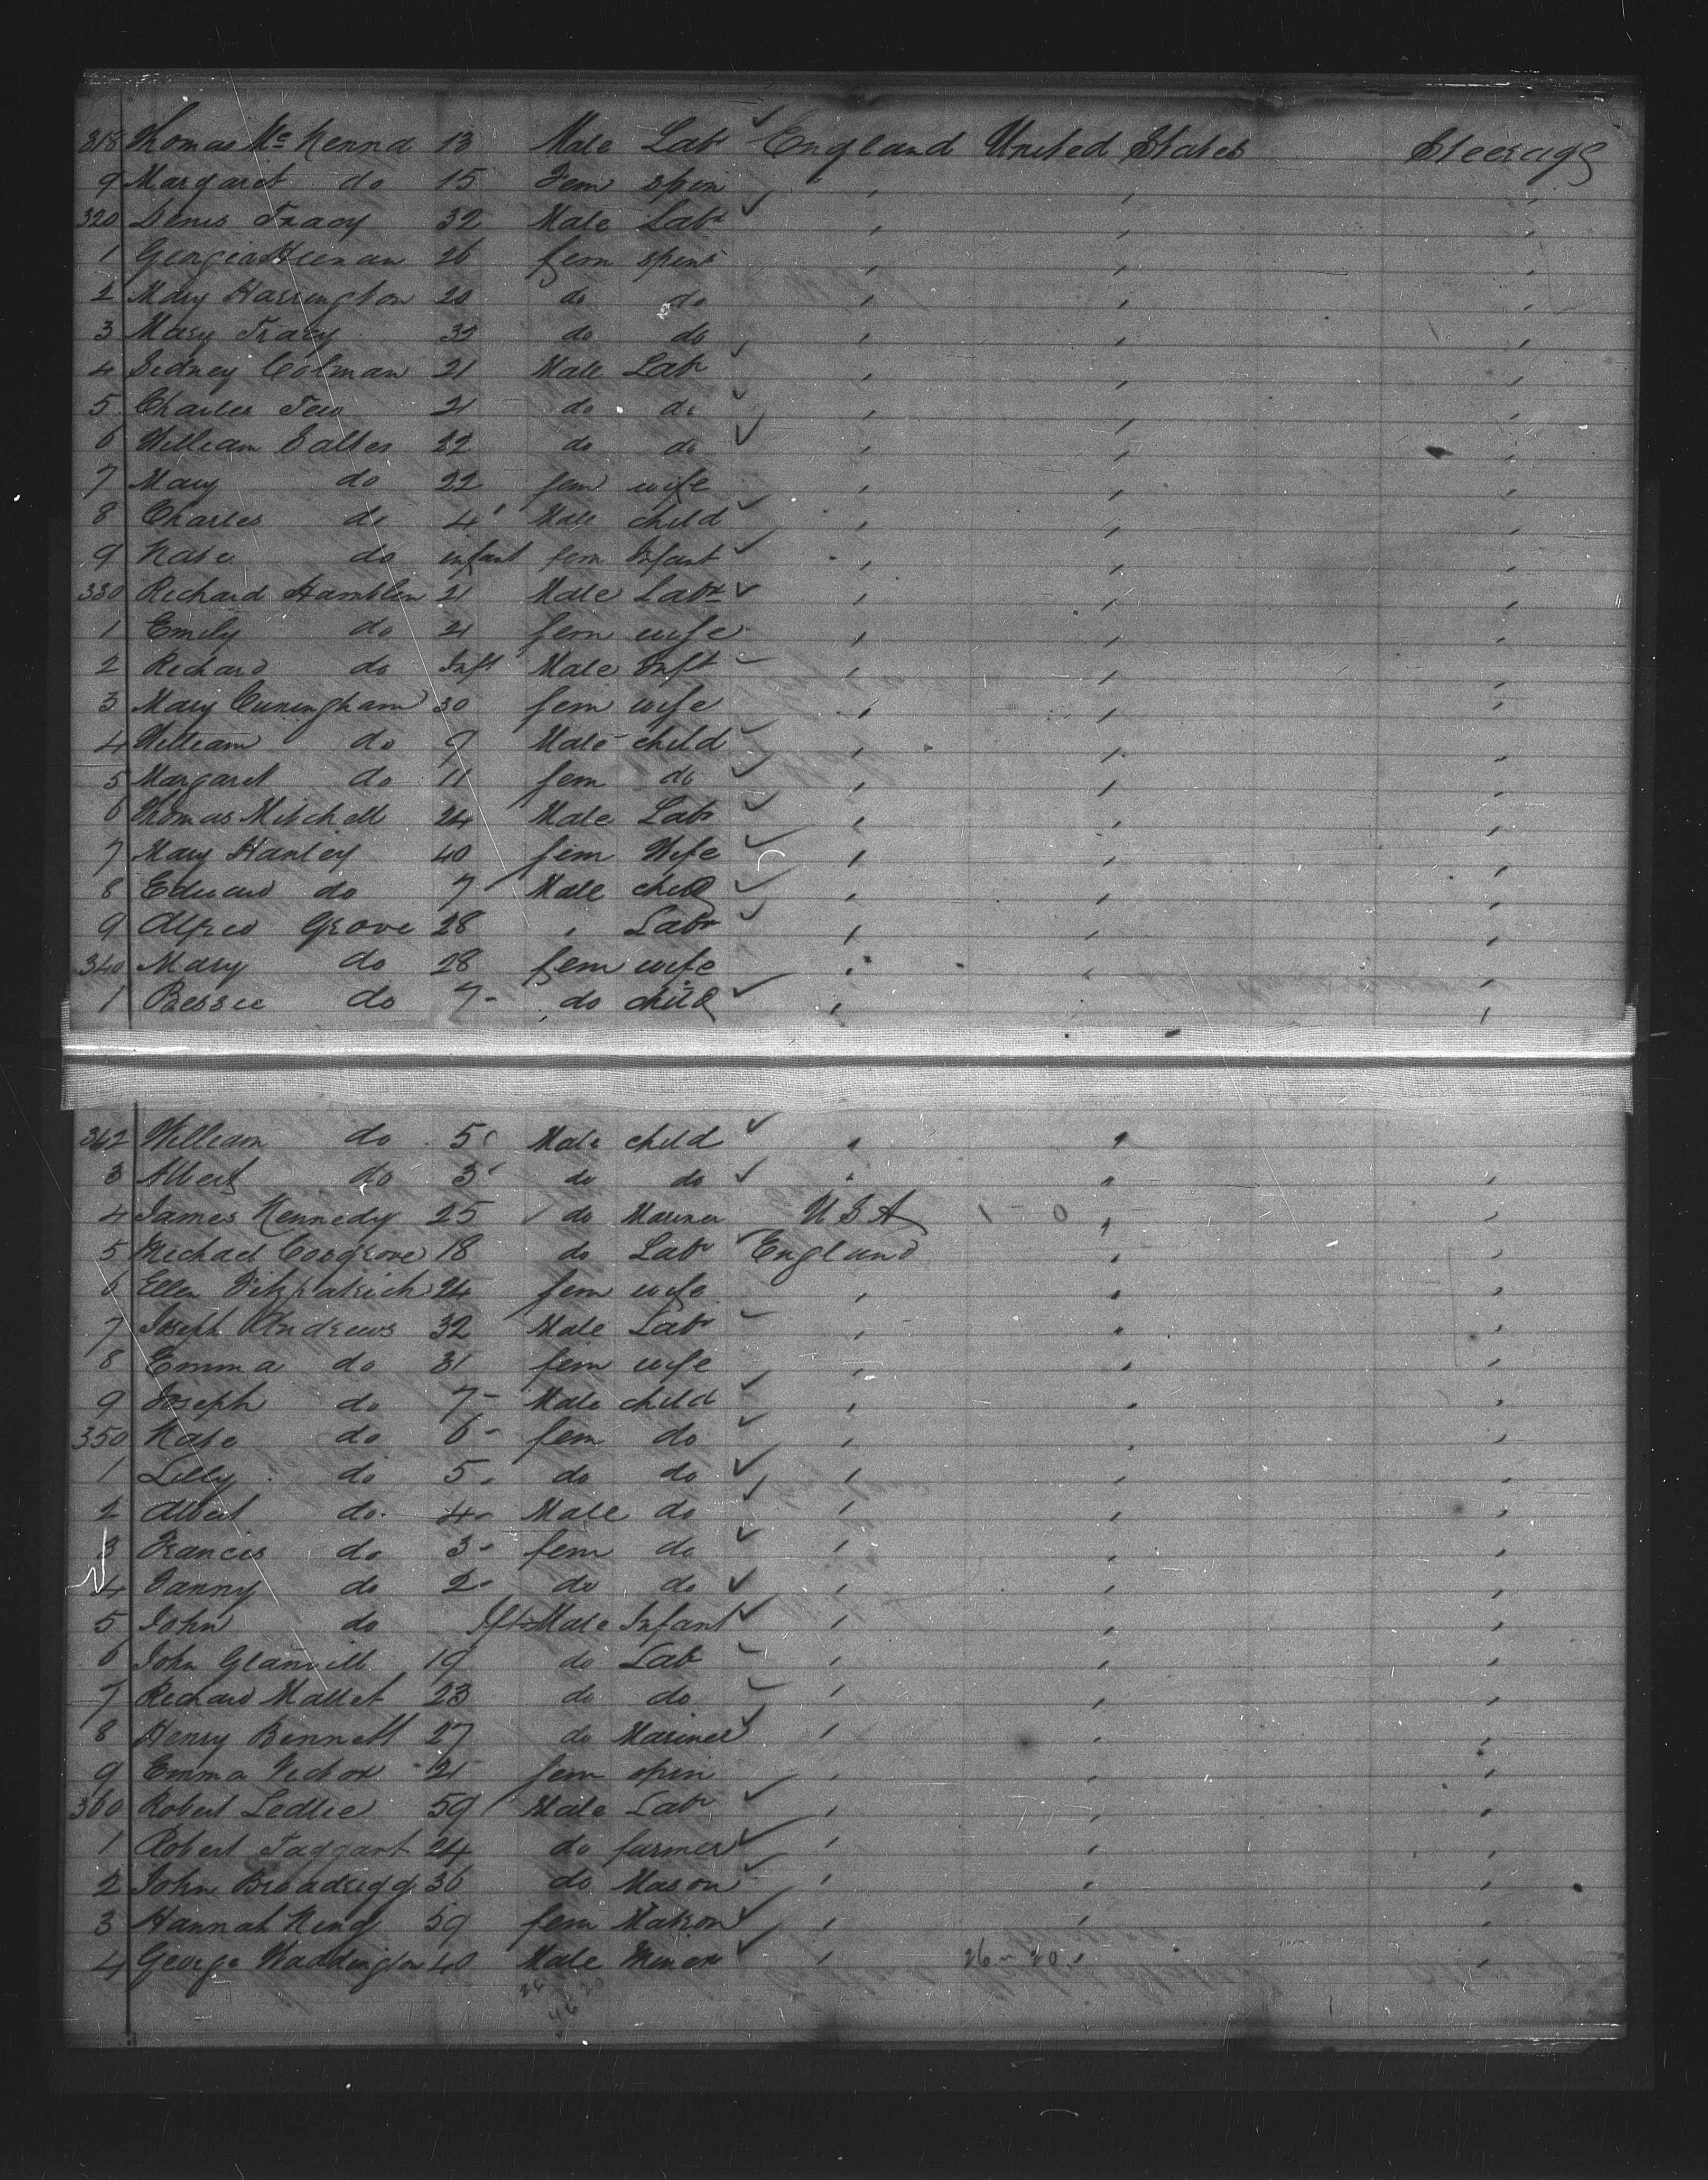 318 Thomas McKenna 13 Male Labr England United States Steerage
9 Margaret do 15 Fem spin " " "
320 Denis Tracy 32 Male Labr " " "
1 Georgia Heenan 26 fem spins " " "
2 Mary Harrington 20 do do " " "
3 Mary Tracy 32 do do " " "
4 Sidney Colman 21 Male Labr " " "
5 Charles Tew 21 do do " " "
6 William Salter 22 do do " " "
7 Mary do 22 fem wife " " "
8 Charles do 4 Male child " " "
9 Kate do infant fem Infant " " "
330 Richard Hamblen 21 Male Labr " " "
1 Emily do 21 fem wife " " "
2 Richard do Inft Male Inft " " "
3 Mary Cuningham 30 fem wife " " "
4 William do 9 Male child " " "
5 Margaret do 11 fem do " " "
6 Thomas Mitchell 24 Male Labr " " "
7 Mary Hanley 40 fem Wife " " "
8 Edward do 7 Male child " " "
9 Alfred Grove 28 " Labr " " "
340 Mary do 28 fem wife " "
1 Bessie do 7 - do child " "
342 William do 5 Male child " " "
3 Albert do 3 do do " " "
4 James Kennedy 25 do Mariner U S A 1 - 0 " "
5 Michael Cosgrove 18 do Labr England " "
6 Ellen Fitzpatrick 24 fem wife " " "
7 Joseph Andrews 32 Male Labr " " "
8 Emma do 31 fem wife " " "
9 Joseph do 7 - Male child " " "
350 Kate do 6 - fem do " " "
1 Lilly do 5 - do do " " "
2 Albert do 4 - Male do " " "
3 Francis do 3 - fem do " " "
4 Fanny do 2 - do do " " "
5 John do Ift Male Infant " " "
6 John Glanvill 19 do Labr " " "
7 Richard Mallet 23 do do " " "
8 Henry Bennett 27 do Mariner " " "
9 Emma Vichox 21 fem spin " " "
360 Robert Ledlie 59 Male Labr " " "
1 Robert Taggart 24 do farmer " " "
2 John Broadrigg 36 do Mason " " "
3 Hannah King 59 fem Matron " " "
4 George Waddington 40 Male Miner " 26 - 20 " "
26 20
46